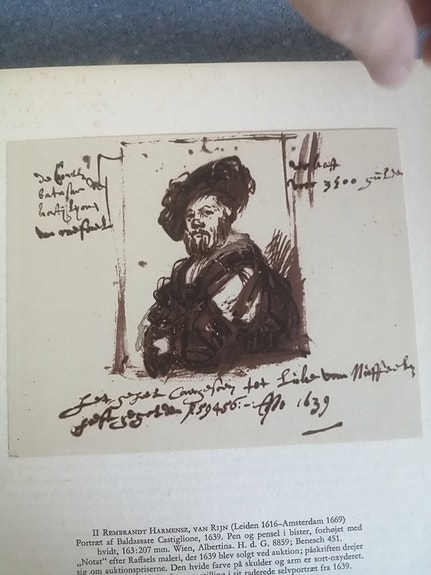 de
batasar de
van raefael
verkoft
voor 3500 gulden
het geheel tot Luke van Nuffeelen
heeft gegolden f 59456:-: Ano 1639
II REMBRANDT HARMENSZ, VAN RIJN (Leiden 1616–Amsterdam 1669)
Portræt af Baldassare Castiglione, 1639. Pen og pensel i bister, forhøjet med
hvidt, 163:207 mm. Wien, Albertina. H. d. G. 8859; Benesch 451.
„Notat“ efter Raffaels maleri, der 1639 blev solgt ved auktion; påskriften drejer
sig om auktionspriserne. Den hvide farve på skulder og arm er sort-oxyderet.
stilling i sit raderede selvportræt fra 1639.